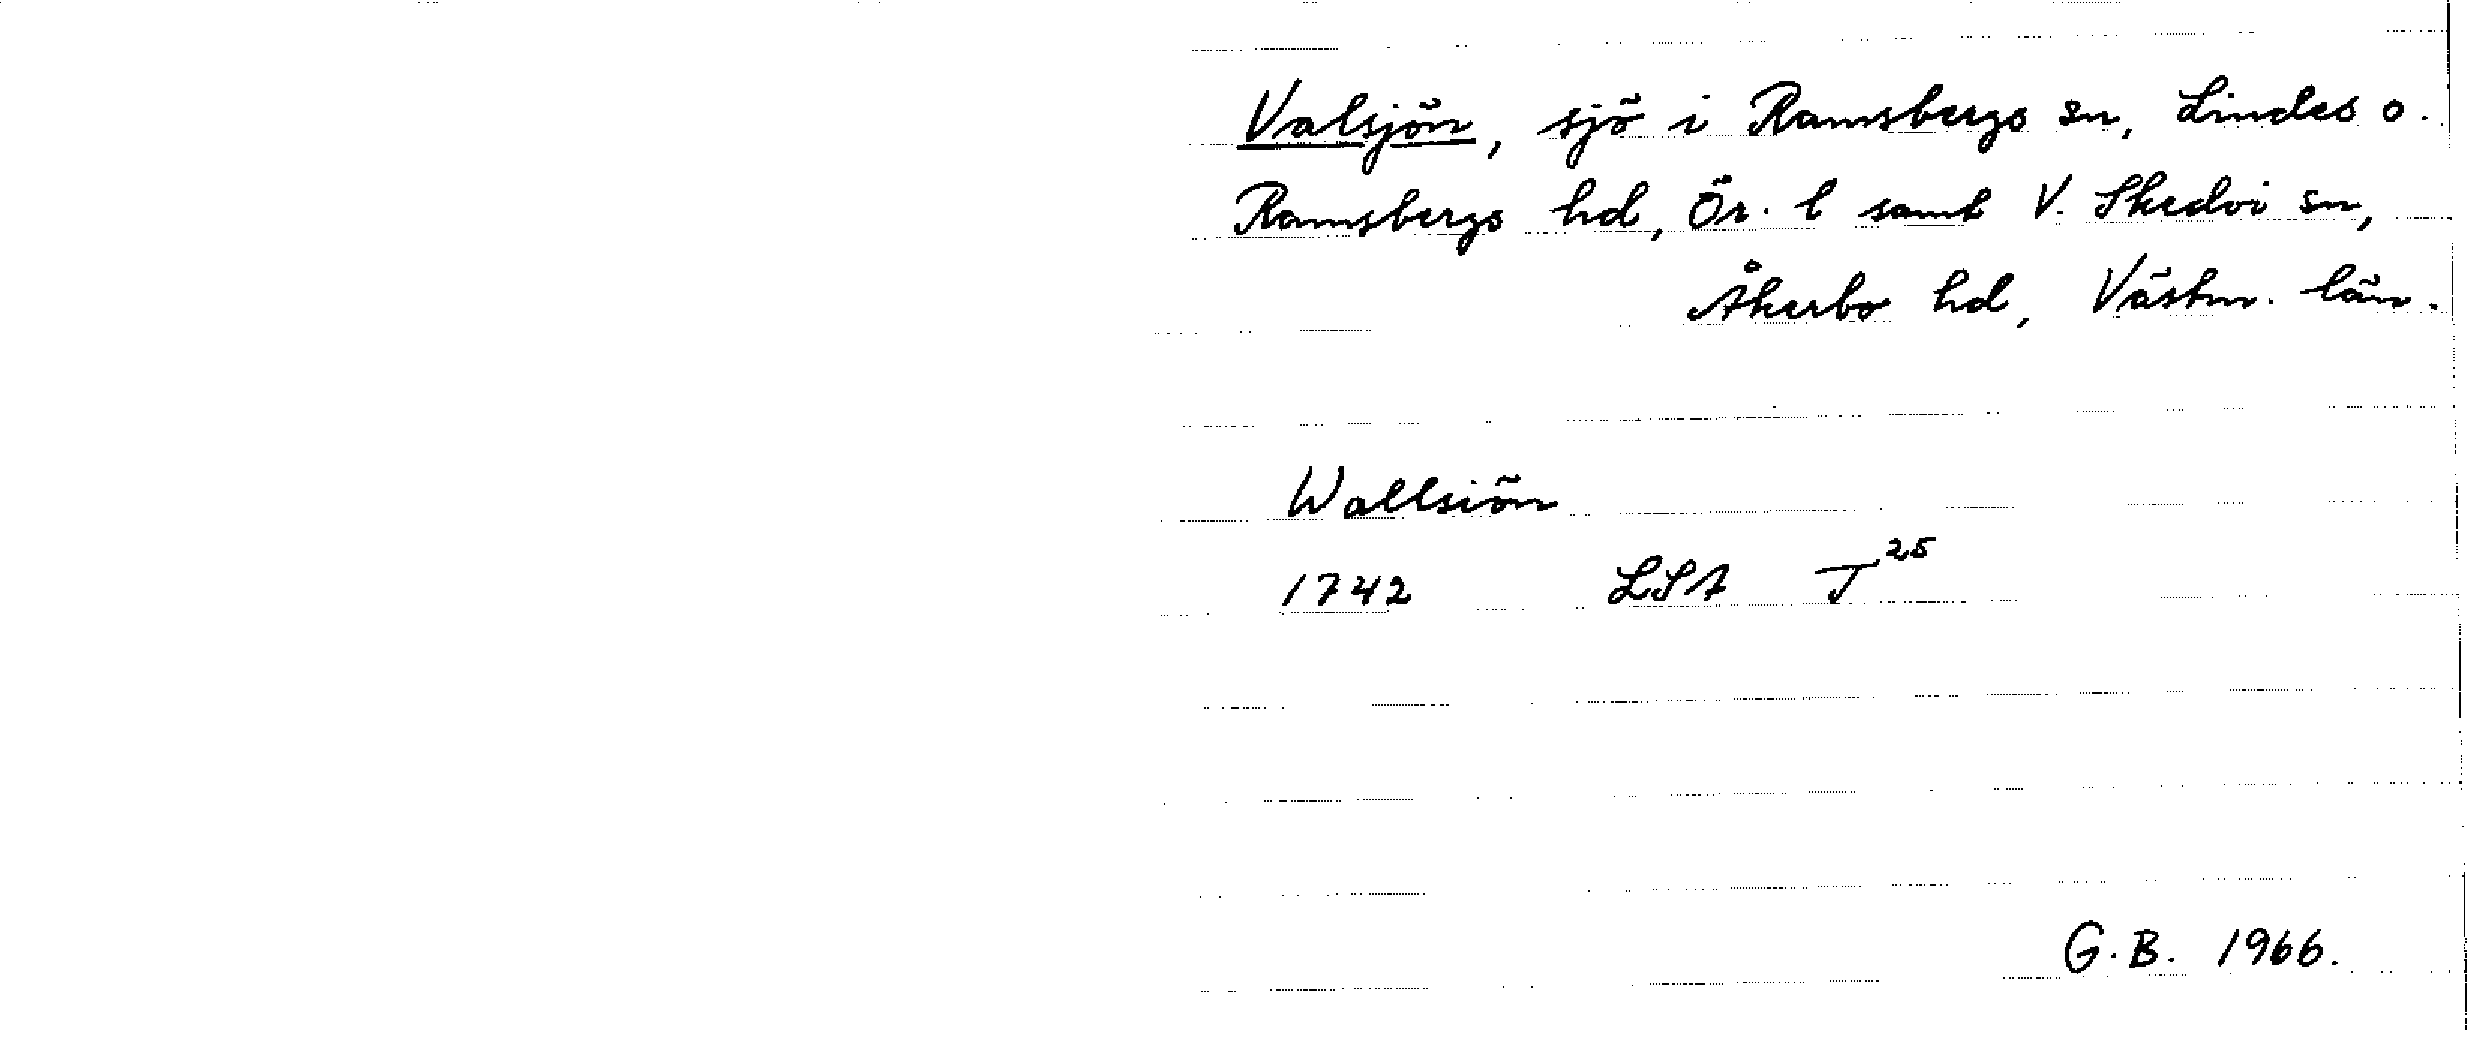 Valsjön, sjö i Ramsbergs sn, Lindes o.
Ramsbergs hd, Ör. l samt V. Skedvi sn,
Åkerbo hd, Västm. län.
Wallsiön
1742 LSA T²⁵
G.B. 1966.